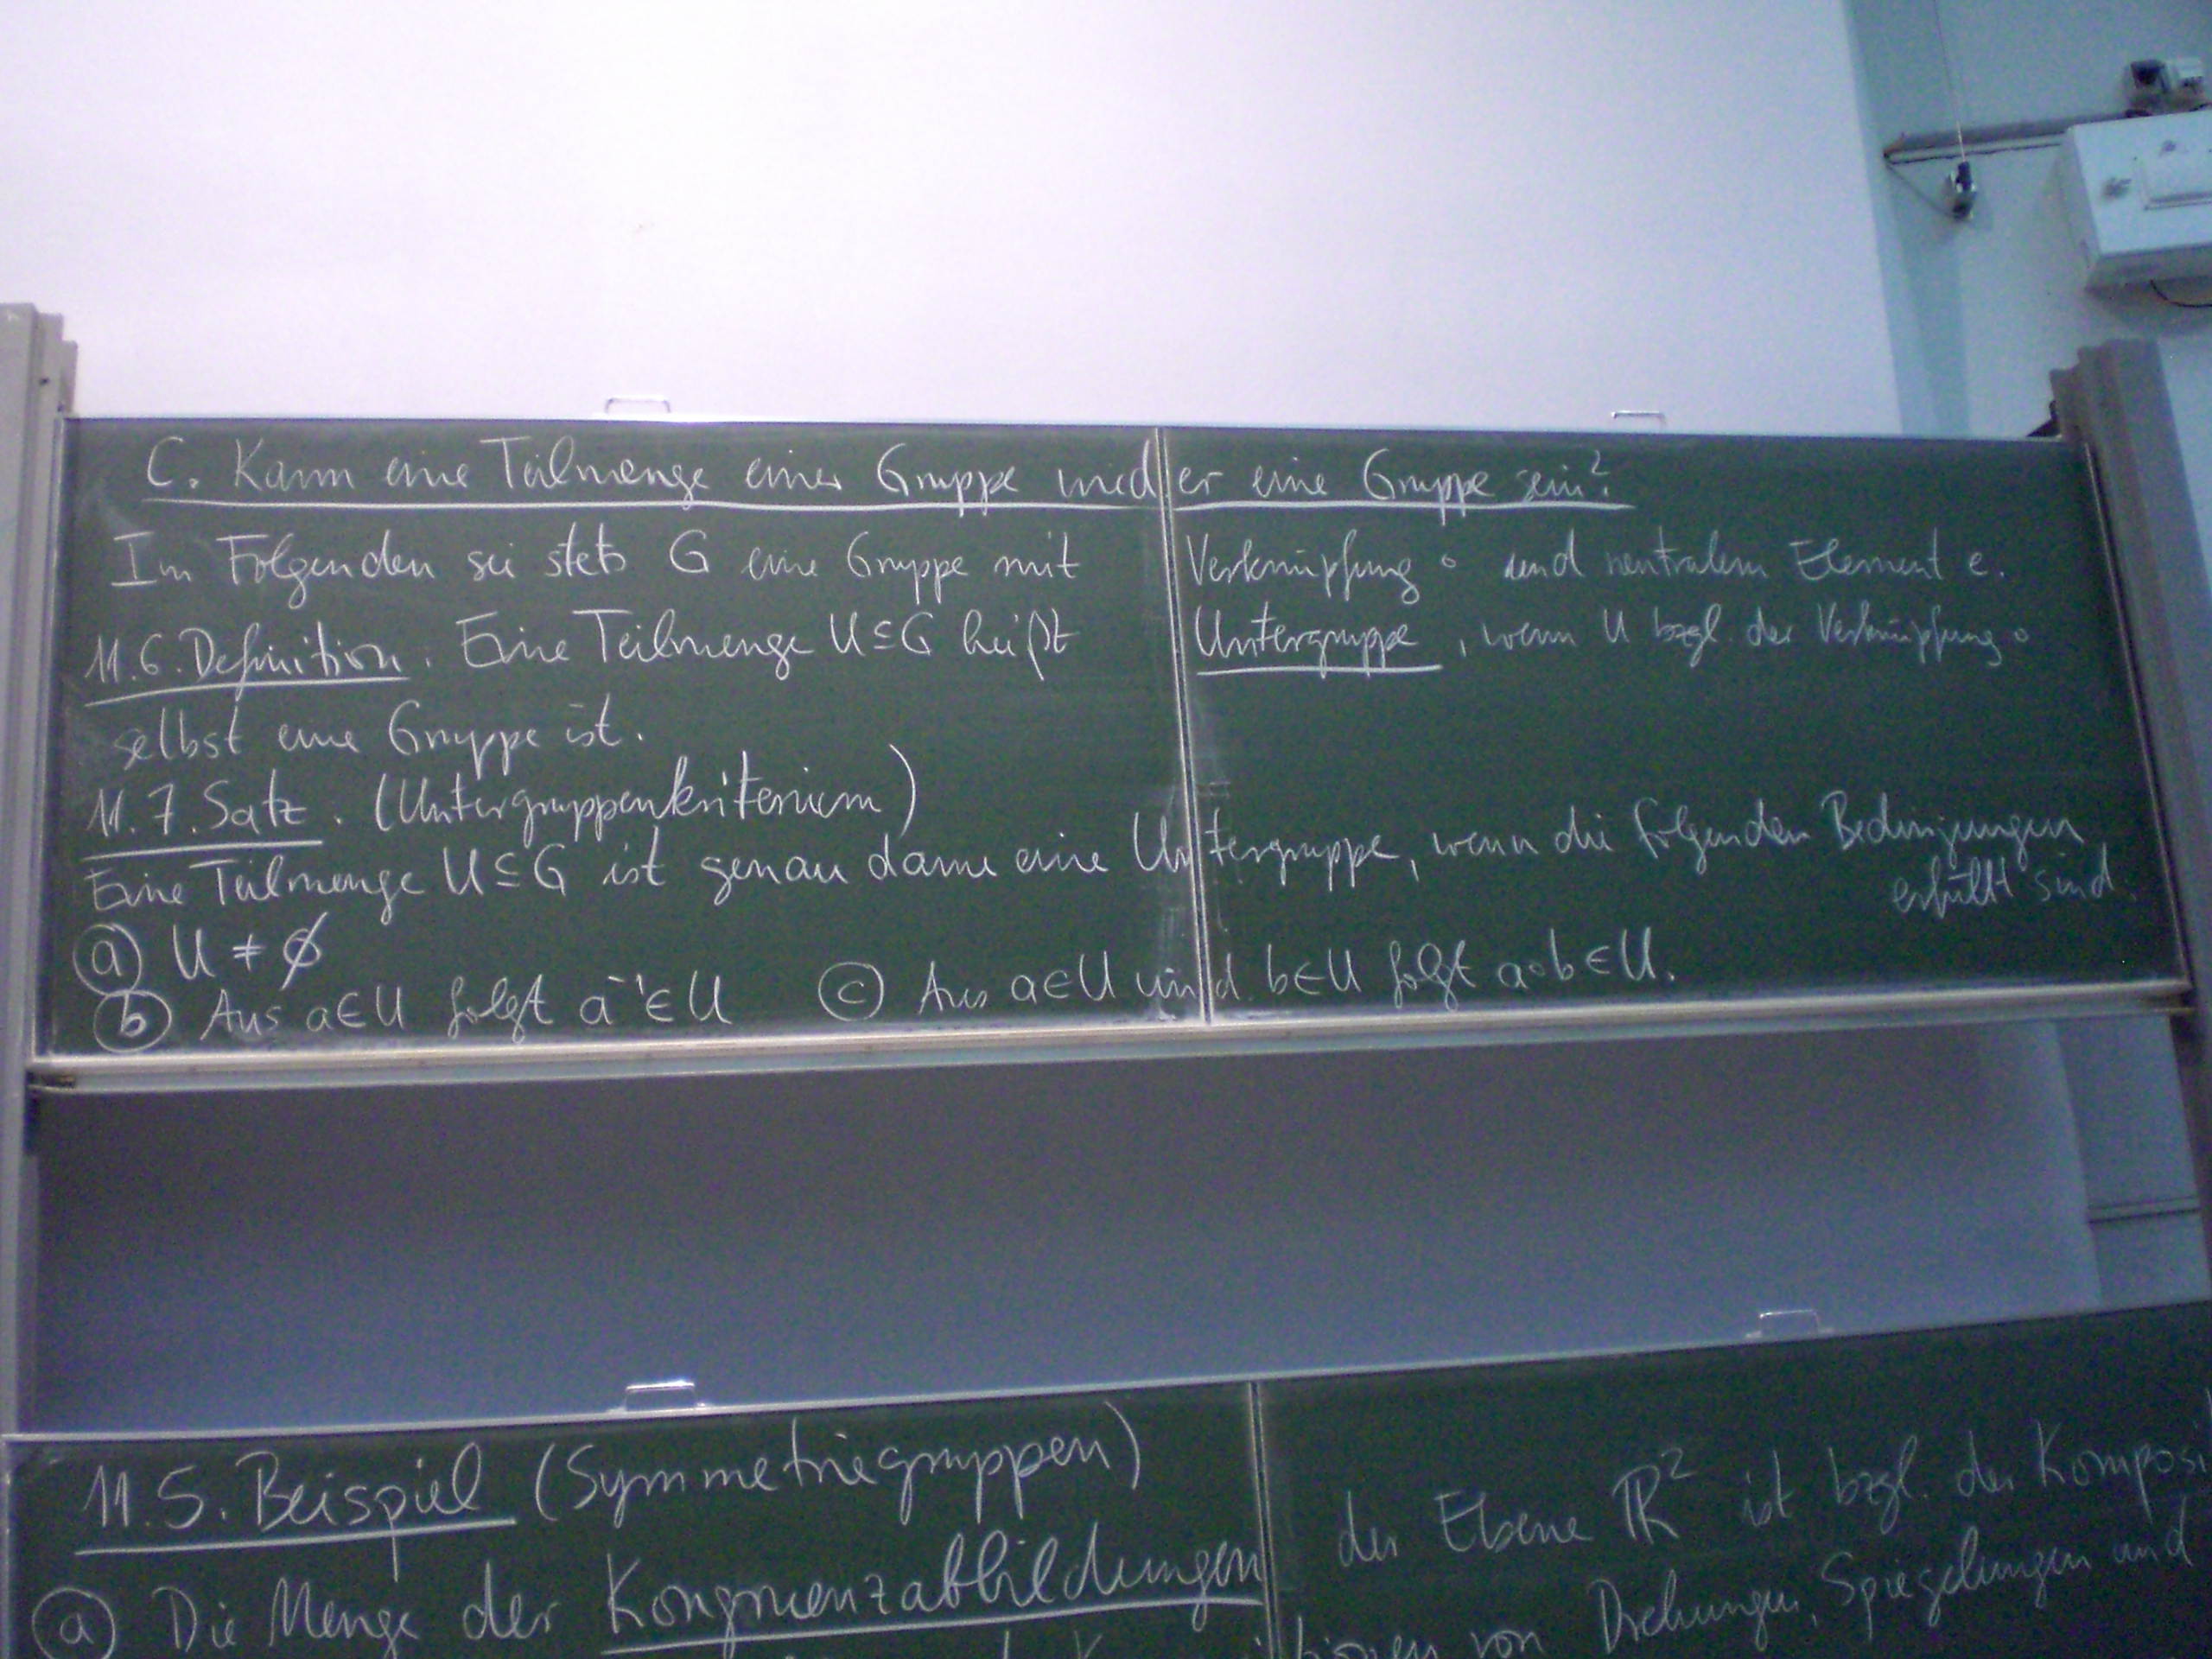 C. Kann eine Teilmenge einer Gruppe wieder eine Gruppe sein?
Im Folgenden sei stets G eine Gruppe mit Verknüpfung ∘ und neutralem Element e.
11.6. Definition. Eine Teilmenge U⊆G heißt Untergruppe, wenn U bzgl. der Verknüpfung ∘
selbst eine Gruppe ist.
11.7. Satz. (Untergruppenkriterium)
Eine Teilmenge U⊆G ist genau dann eine Untergruppe, wenn die folgenden Bedingungen
erfüllt sind.
ⓐ U ≠ ∅
ⓑ Aus a∈U folgt a⁻¹∈U ⓒ Aus a∈U und b∈U folgt a∘b∈U.
11.5. Beispiel (Symmetriegruppen)
ⓐ Die Menge der Kongruenzabbildungen der Ebene ℝ² ist bzgl. der Komposi
von Drehungen, Spiegelungen und